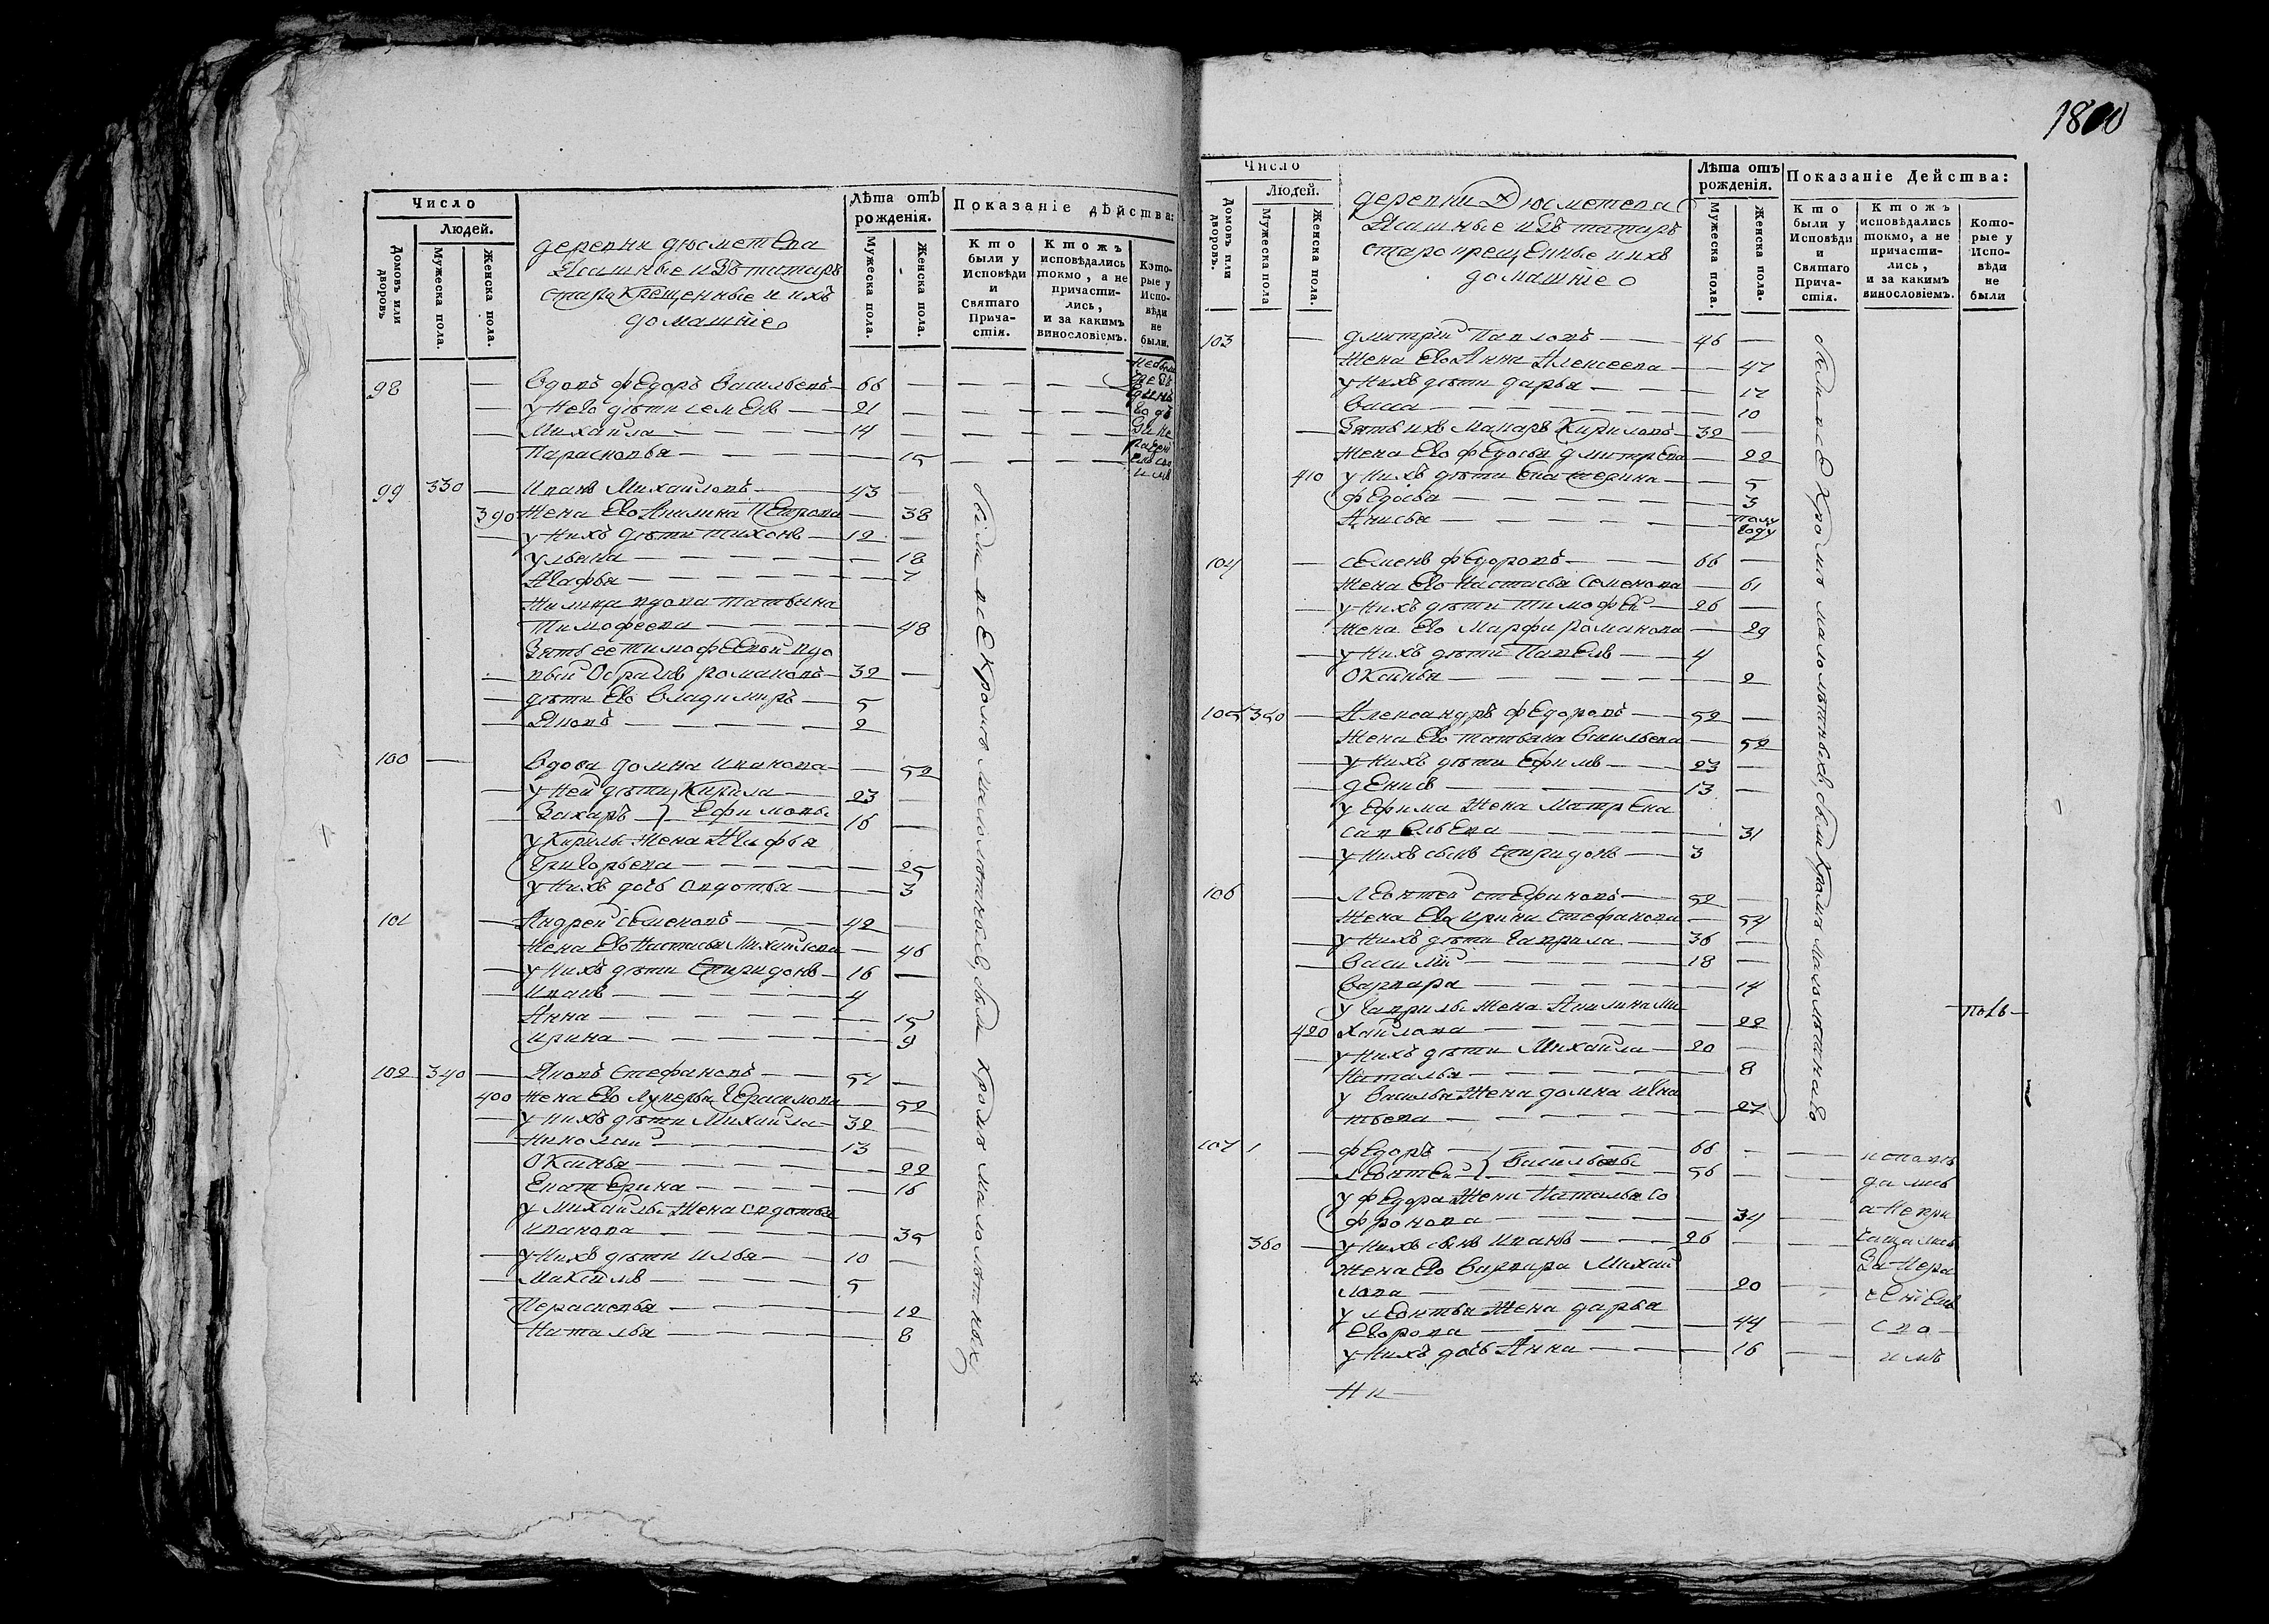 Число
Людей.
Домовъ или дворовъ.
Мужеска пола.
Женска пола.
деревни дюсметева
Ясашные изъ татаръ
старокрещенные и ихъ
домашніе
Лѣта отъ рожденія.
Мужеска пола.
Женска пола.
Показаніе дѣйства:
Кто были у Исповѣди и Святаго Прича-стія.
Ктожъ исповѣдались токмо, а не причасти-лись, и за какимъ винословіемъ.
Кото-рые у Испо-вѣди не были.
98 — вдовъ федоръ Васильевъ — 66
— у него дѣти семенъ — 21
— Михайла — 14
Парасковья — 15
99 330 — Иванъ Михайловъ — 43
390 жена его Акилина Петрова — 38
— у нихъ дѣти тихонъ — 12
ульяна — 18
Агафья — 7
жилица вдова татьяна
Тимофеева — 48
Зять ее тимофеевой вдо
вый Осралѣ романовъ — 32
— дѣти его Владимиръ — 5
— Яковъ — 2
100 — Вдова домна иванова — 52
— у ней дѣти Кирила — 23
Захаръ } Ефимовы 16
у Кирилы жена Агафья
Григорьева — 25
у нихъ дочь Авдотья — 3
101 — Андрей семеновъ — 42
жена его Настасья Михайлова — 46
— у нихъ дѣти Спиридонъ — 16
— Иванъ — 4
Анна — 15
ирина — 9
102 340 — Яковъ Стефановъ — 54
400 жена его Лукерья Герасимова — 52
— у нихъ дѣти Михайла — 32
— Николай — 13
Оксинья — 22
Екатерина — 16
у Михайлы жена Авдотья
иванова — 35
— у нихъ дѣти илья — 10
— Максимъ — 5
Парасковья — 12
Наталья — 8
были всѣ кромѣ малолѣтныхъ, были кромѣ малолѣтных
1800
Число
Людей.
Домовъ или дворовъ.
Мужеска пола
Женска пола.
деревни Дюсметева
Ясашные изъ татаръ
старокрещенные и ихъ
домашніе
Лѣта отъ рожденія.
Мужеска пола.
Женска пола.
Показаніе Действа:
Кто были у Исповѣди и Святаго Прича-стія.
Ктожъ исповѣдались токмо, а не причасти-лись, и за какимъ винословіемъ.
Кото-рые у Испо-вѣди не были
103 — дмитрій Павловъ — 46
жена его Анна Алексеева — 47
у нихъ дѣти дарья — 17
васса — 10
— Зять ихъ Макаръ Кириловъ — 32
жена его федосья дмитрева — 22
410 у нихъ дѣти Екатерина — 5
федосья — 3
Анисья — полу году
104 — семенъ федоровъ — 66
жена его Настасья Семенова — 61
— у нихъ дѣти тимофей — 26
жена его Марфа романова — 29
— у нихъ дѣти Павелъ — 4
Оксинья — 2
105 350 — Александръ федоровъ — 52
жена его татьяна васильева — 52
— у нихъ дѣти Ефимъ — 23
— денисъ — 13
у Ефима жена Матрена
савельева — 31
— у нихъ сынъ спиридонъ — 3
106 — Леонтей стефановъ — 52
жена его ирина стефанова — 54
— у нихъ дѣти гаврила — 36
— василій — 18
варвара — 14
у гаврилы жена Акилина ми
420 хайлова — 22
— у нихъ дѣти Михайла — 20
Наталья — 8
у василья жена домна игна
тьева — 27
107 1 — федоръ — 66
— леонтей } васильевы — 56
у федора жена Наталья со
фронова — 34
360 — у нихъ сынъ иванъ — 26
жена его варвара михай
лова — 20
у леонтья жена дарья
егорова — 44
у нихъ дочь Анна — 16
были всѣ кромѣ малолѣтныхъ, были кромѣ малолѣтнаго
исповѣ
дались
а непри
чащались
За нера
ченіемъ
сво
имъ